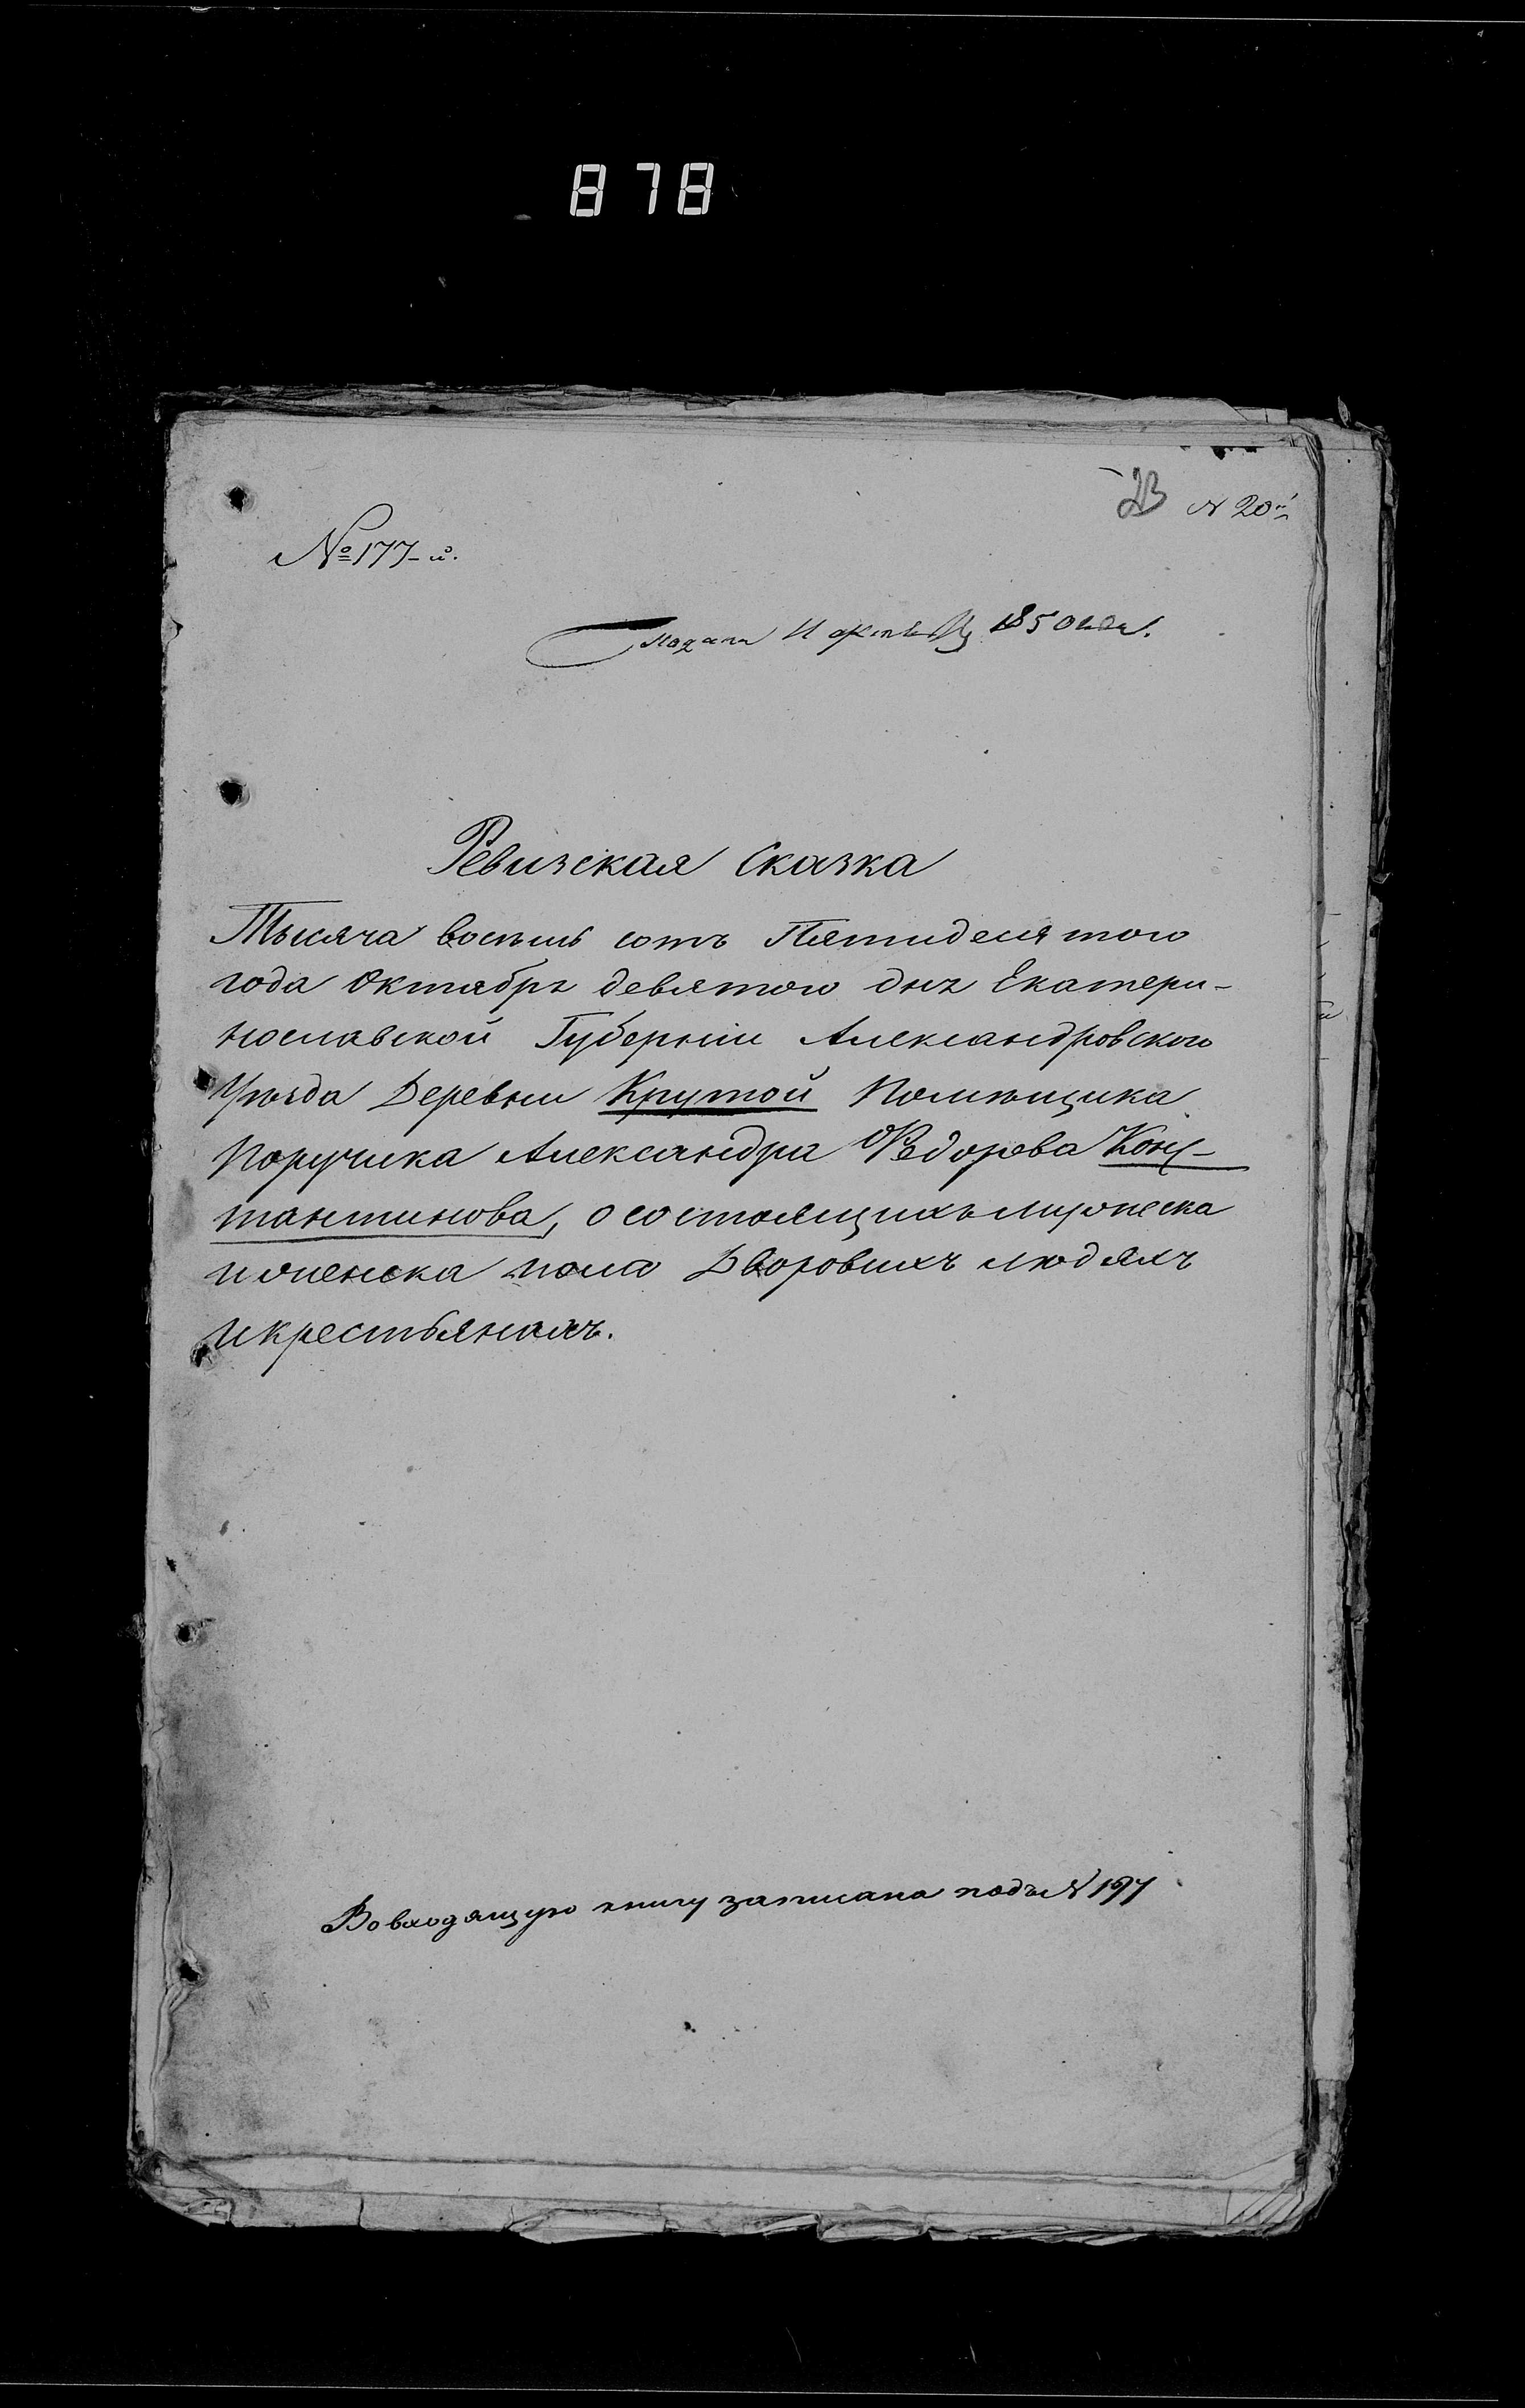 878
23 № 20й
№ 177-й.
Подана 11 октября 1850 года.
Ревизская Сказка
Тысяча восемь сотъ Пятидесятого
года Октября девятого дня Екатери-
нославской Губерніи Александровского
Уѣзда Деревни Крутой Помѣщика
Поручика Александра Федорова Конс-
тантинова, о состоящихъ мужеска
и женска пола Дворовыхъ людяхъ
и крестьянахъ.
Во входящую книгу записана подъ № 197